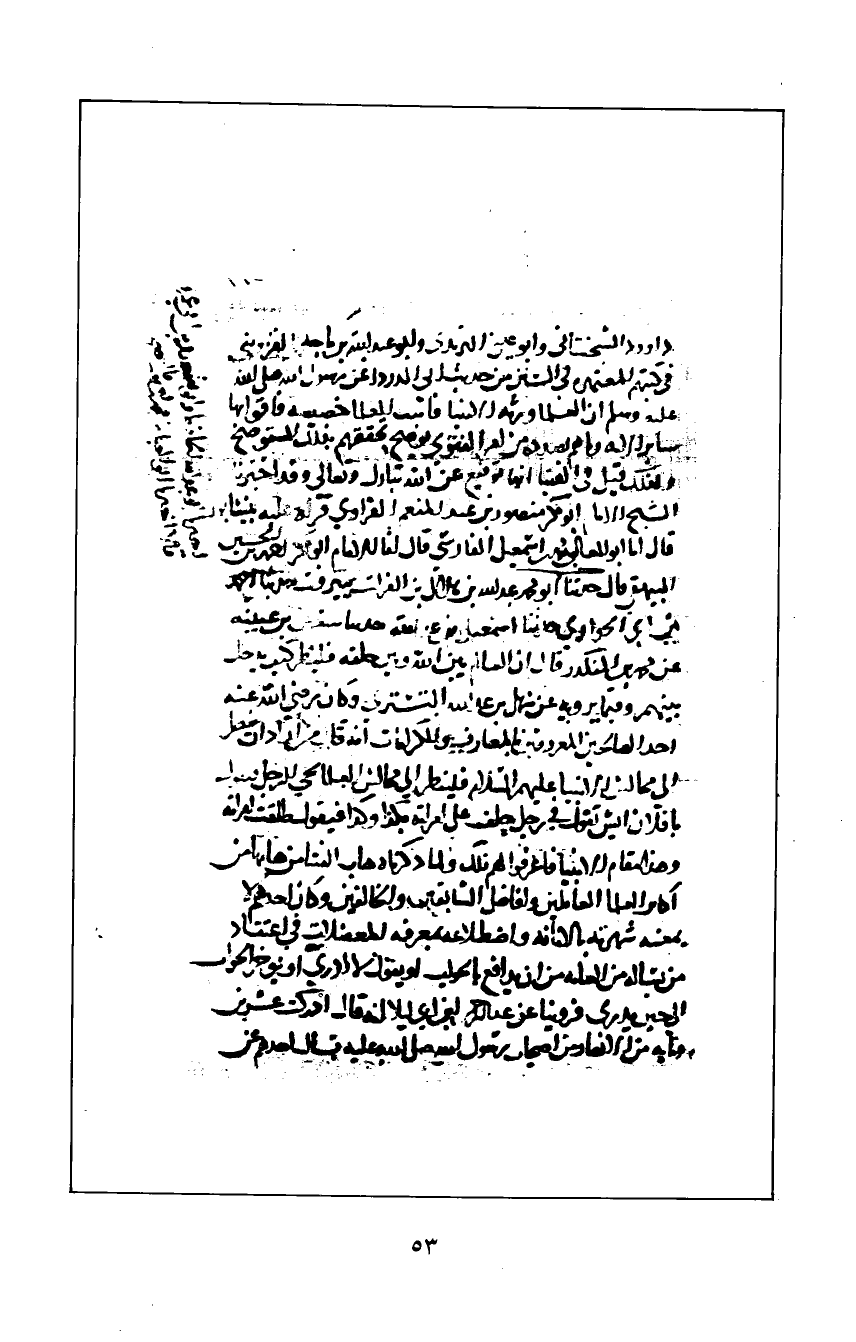 داود السجستاني وابو عيسى الترمذي وابو عبد الله بن ماجه القزويني
في كتبهم المعتمدة في السنن من حديث ابي الدرداء عن رسول الله صلى الله
عليه وسلم ان العلما ورثة الانبيا فاثبت للعلما خصيصة فاقوا بها
ساير الامة وما هم بصدده من امر الفتوى يوضح تحققهم بذلك للمستوضح
ولذلك قيل في الفتيا انها توقيع عن الله تبارك وتعالى وقد اخبرنا
الشيخ الامام ابو بكر منصور بن عبد المنعم الفراوي قراة عليه بنيسابور
قال انا ابو المعالي محمد بن اسمعيل الفارسي قال انا الامام ابو بكر احمد بن الحسين
البيهقي قال حدثنا ابو محمد عبد الله بن بن الفرات حدثنا احمد
بن ابي الحواري حدثنا اسمعيل بن حدثنا سفين بن عيينه
عن محمد بن المنكدر قال ان العالم بين الله وبين خلقه فلينظر كيف يدخل
بينهم وفيما يرويه عن سهل بن عبد الله التستري وكان رضي الله عنه
احد الصالحين المعروفين بالمعارف والكرامات انه قال من اراد ان ينظر
الى مجالس الانبيا عليهم السلام فلينظر الى مجالس العلما يجي الرجل فيقول
يا فلان ايش تقول في رجل حلف على امراته بكذا وكذا فيقول طلقت امراته
وهذا مقام الانبيا فاعرفوا لهم ذلك ولما ذكرناه هاب الفتيا من هابها من
اكابر العلما العاملين وافاضل السابقين والخالفين وكان احدهم لا
يمنعه شهرته بالامانه واضطلاعه بمعرفة المعضلات في اعتقاد
من يساله من العامه من ان يدافع بالجواب او يقول لا ادري او يوخر الجواب
الى حين يدري فروينا عن عبد الرحمن بن ابي ليلى انه قال ادركت عشرين
ومايه من الانصار من اصحاب رسول الله صلى الله عليه يسال احدهم عن
٥٣